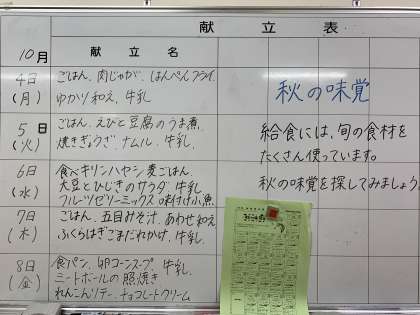 献立表
10月
献立名
4日
(月)
ごはん、肉じゃが、はんぺんフライ、
ゆかり和え、牛乳
5日
(火)
ごはん、えびと豆腐のうま煮、
焼きぎょうざ、ナムル、牛乳、
6日
(水)
食べキリンハヤシ 麦ごはん
大豆とひじきのサラダ 牛乳
フルーツゼリーミックス 味付け小魚
7日
(木)
ごはん、五目みそ汁、あわせ和え
ふくらはぎごまだれかけ、牛乳
8日
(金)
食パン、卵コーンスープ 牛乳
ミートボールの照焼き
れんこんソテー、チョコレートクリーム
秋の味覚
給食には、旬の食材を
たくさん使っています。
秋の味覚を探してみましょう